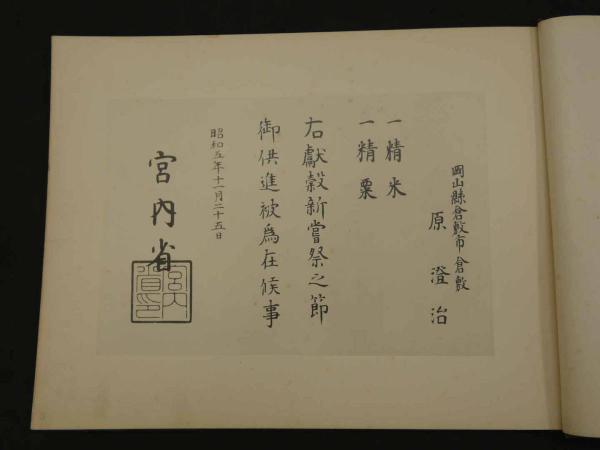 岡山縣倉敷市倉敷
原澄治
一精米
一精粟
右獻穀新嘗祭之節
御供進被爲在候事
昭和五年十一月二十五日
宮內省
宮內省印